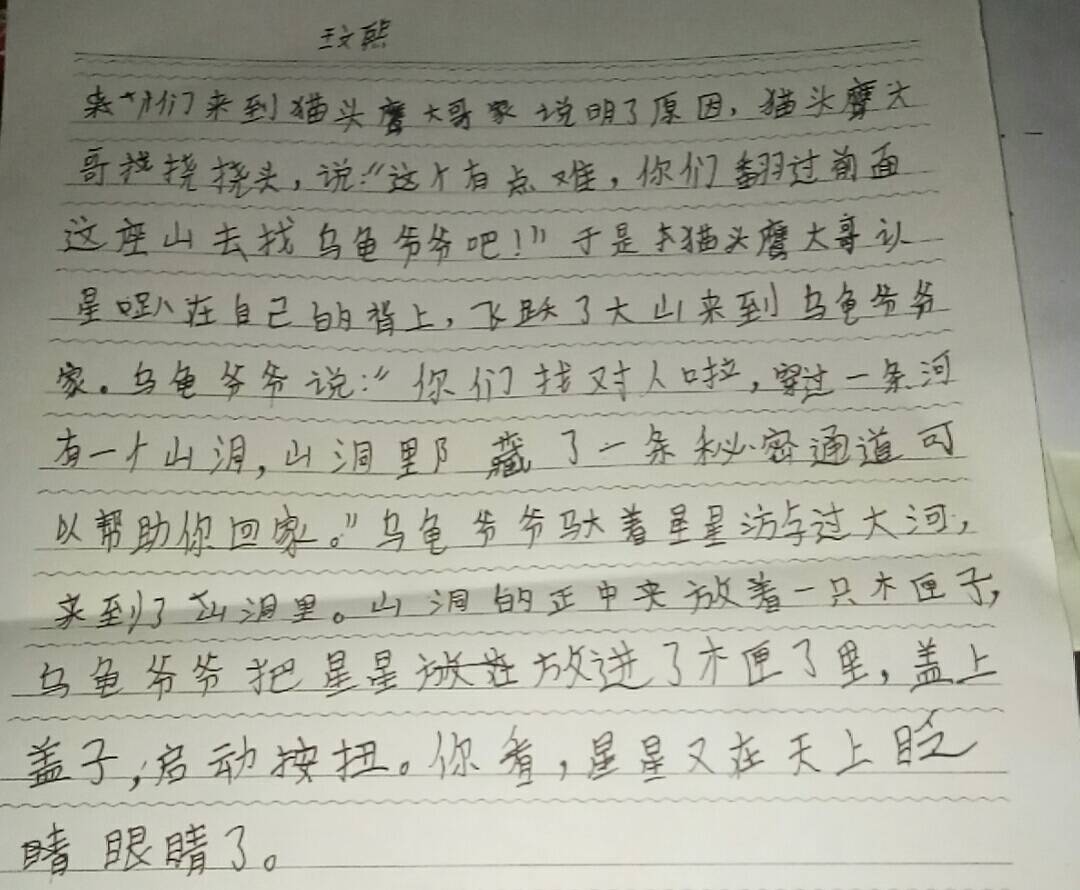 王文熙
来他们来到猫头鹰大哥家说明了原因，猫头鹰大
哥挠挠头，说：“这个有点难，你们翻过前面
这座山去找乌龟爷爷吧！”于是猫头鹰大哥认
星趴在自己的背上，飞跃了大山来到乌龟爷爷
家。乌龟爷爷说：“你们找对人啦，穿过一条河
有一个山洞，山洞里那藏了一条秘密通道可
以帮助你回家。”乌龟爷爷驮着星星游过大河，
来到了山洞里。山洞的正中央放着一只木匣子，
乌龟爷爷把星星放进了木匣了里，盖上
盖子，启动按扭。你看，星星又在天上眨
晴眼睛了。